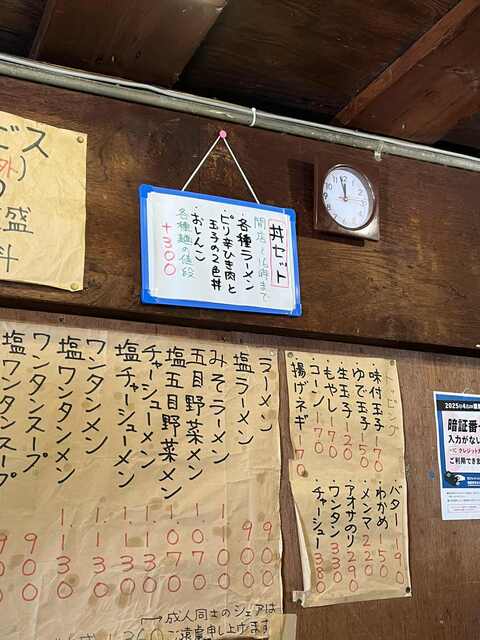 ビス
外)
盛
料
丼セット
開店~16時まで
・各種ラーメン
・ピリ辛ひき肉と
玉子の2色丼
・おしんこ
各種麺の値段
+300
ラーメン 900
塩ラーメン 900
みそラーメン 1.000
五目野菜メン 1.170
塩五目野菜メン 1.170
チャーシューメン 1.300
塩チャーシューメン
ワンタンメン
塩ワンタンメン
ワンタンスープ
塩ワンタンスープ
トッピング
・味付玉子-170
・ゆで玉子-150
・生玉子-120
・もやし-170
・コーン-170
・揚げネギ-170
・バター 190
・わかめ 150
・メンマ 220
・アオサのり 290
・ワンタン 330
・チャーシュー 380
成人同士のシェアは
ご遠慮申し上げます
360
2025年4月以降
暗証番
入力がない
クレジットカ
ご利用できま